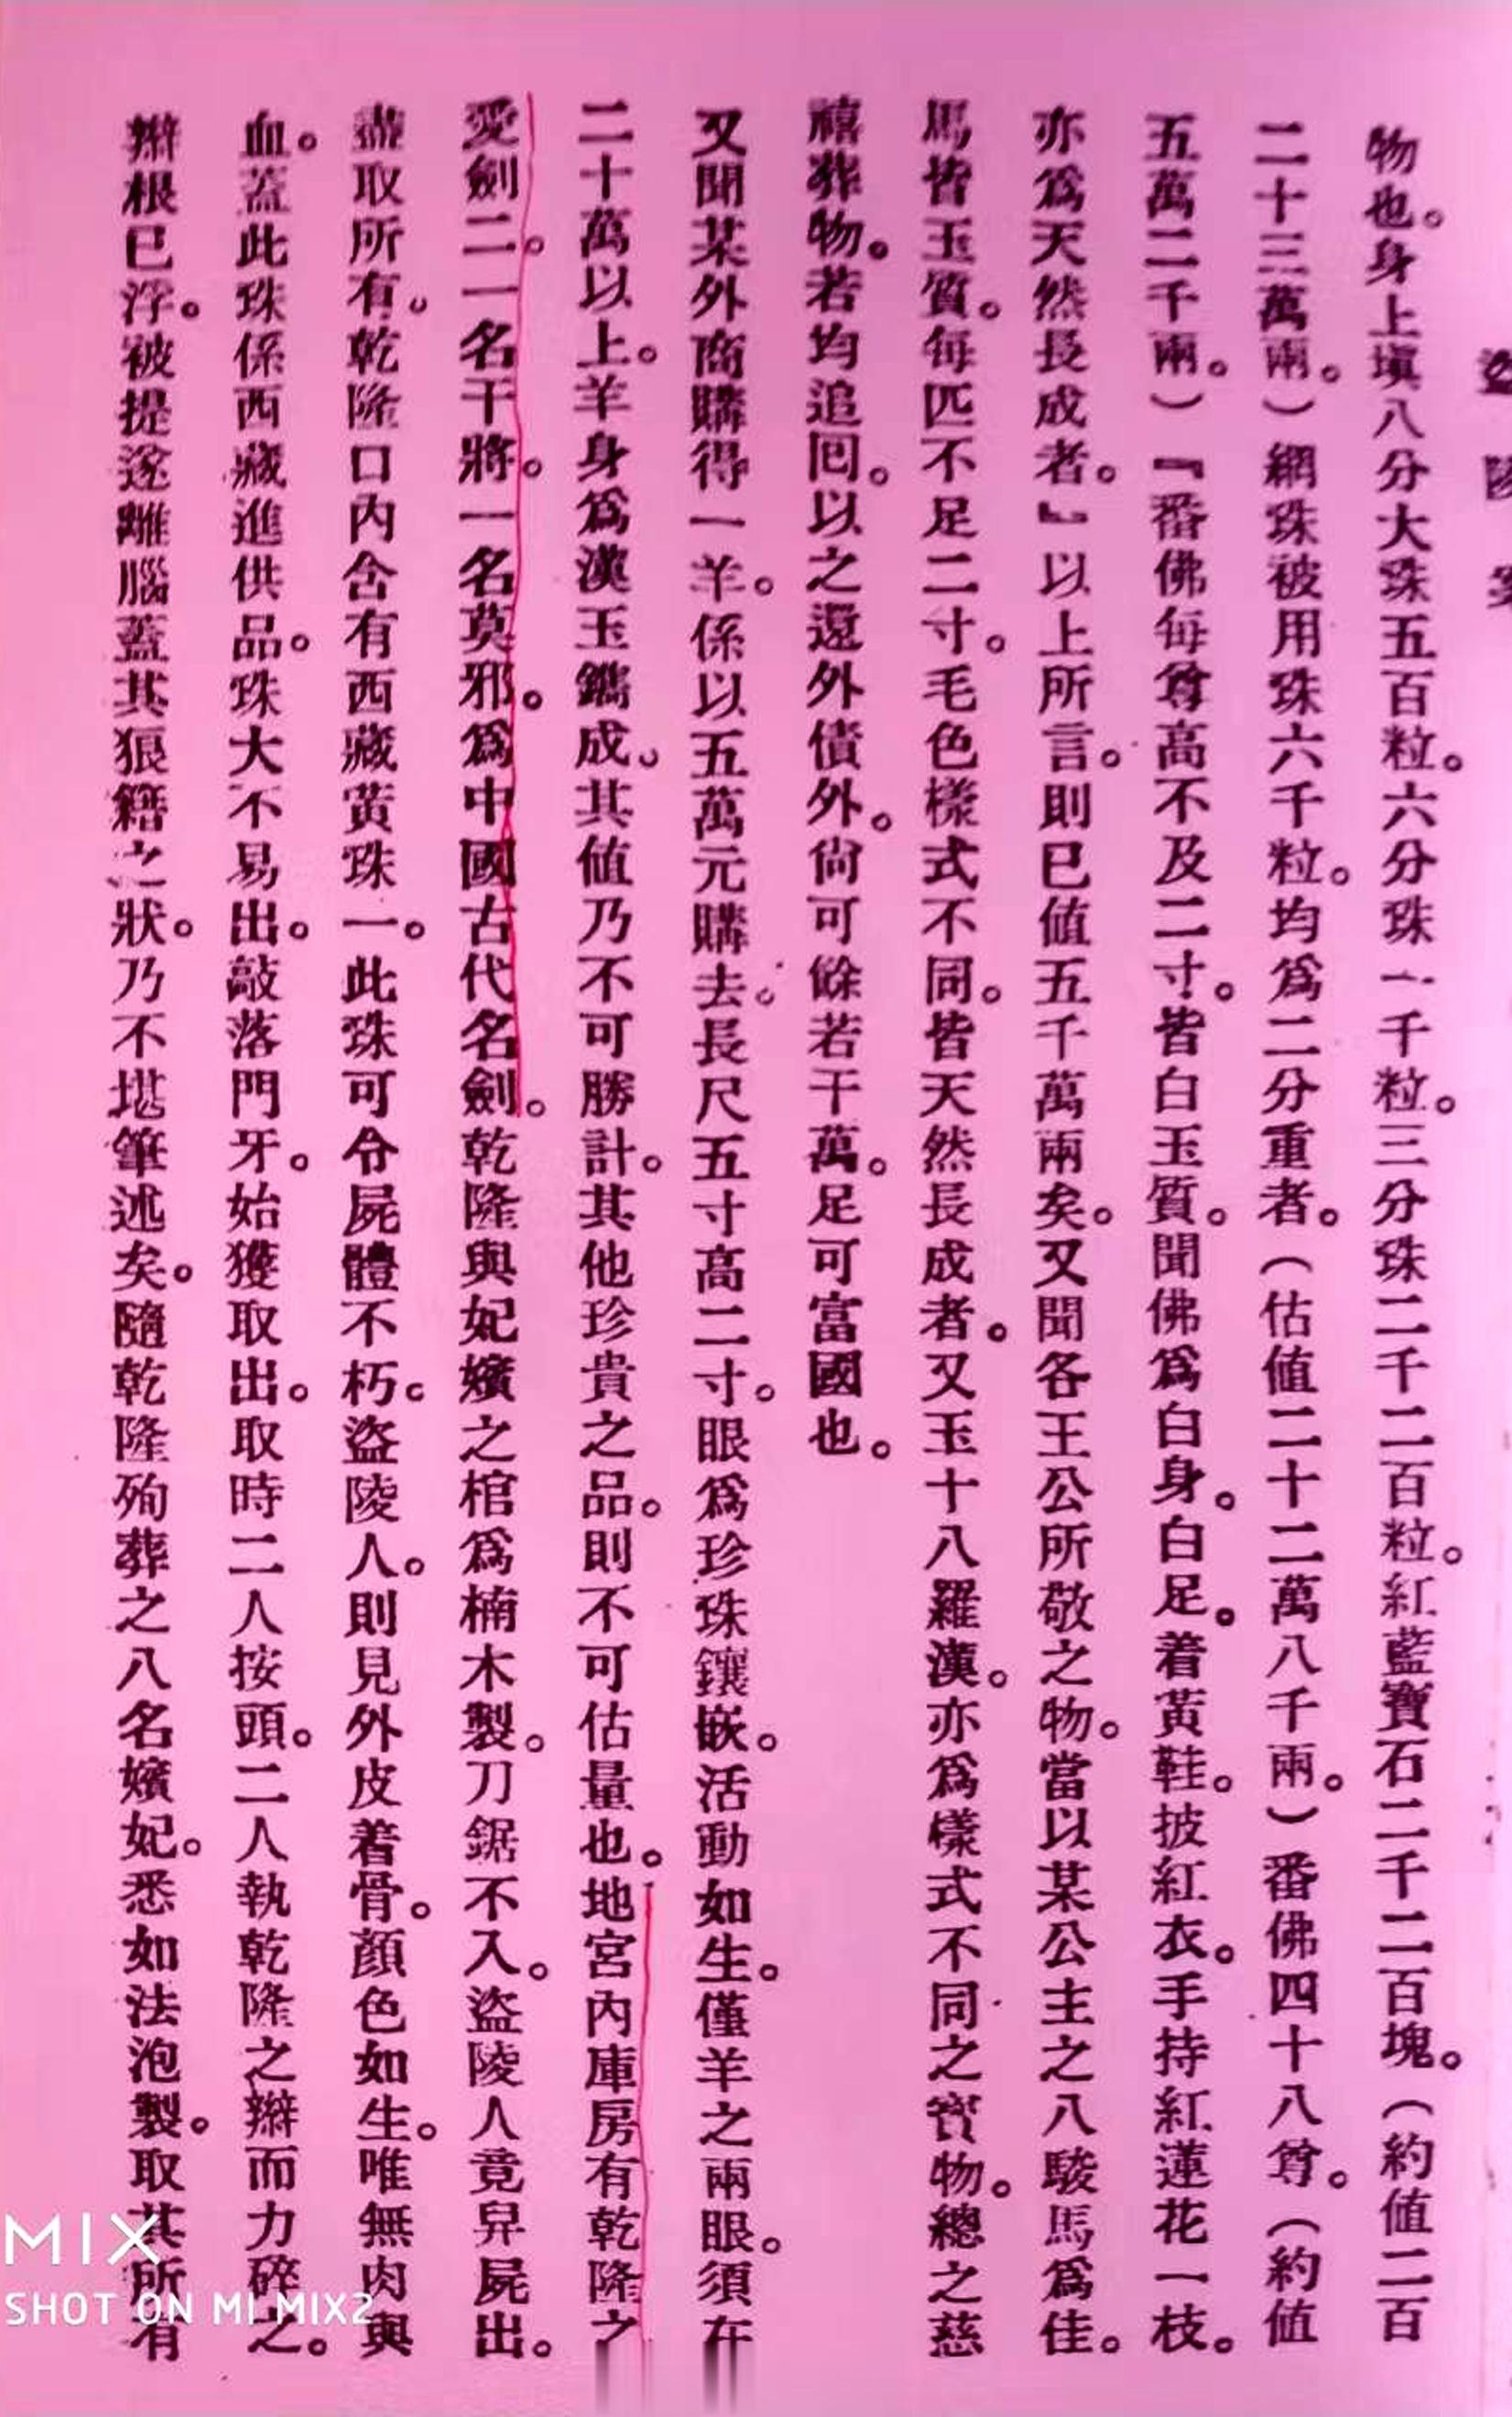 盜陵
物也。身上塡八分大珠五百粒。六分珠一千粒。三分珠二千二百粒。紅藍寶石二千二百塊。（約値二百
二十三萬兩。）網珠被用珠六千粒。均爲二分重者。（估値二十二萬八千兩。）番佛四十八尊。（約値
五萬二千兩。）『番佛每尊高不及二寸。皆白玉質。聞佛爲白身。白足。着黃鞋。披紅衣。手持紅蓮花一枝。
亦爲天然長成者。』以上所言。則已値五千萬兩矣。又聞各王公所敬之物。當以某公主之八駿馬爲佳。
馬皆玉質。每匹不足二寸。毛色樣式不同。皆天然長成者。又玉十八羅漢。亦爲樣式不同之寳物。總之慈
禧葬物。若均追回。以之還外債外。尙可餘若干萬。足可富國也。
又聞某外商購得一羊。係以五萬元購去。長尺五寸高二寸。眼爲珍珠鑲嵌。活動如生。僅羊之兩眼。須在
二十萬以上。羊身爲漢玉鐫成。其値乃不可勝計。其他珍貴之品。則不可估量也。地宮內庫房有乾隆之
愛劍二。一名干將。一名莫邪。爲中國古代名劍。乾隆與妃嬪之棺爲楠木製。刀鋸不入。盜陵人竟舁屍出。
盡取所有。乾隆口內含有西藏黃珠一。此珠可令屍體不朽。盜陵人。則見外皮着骨。顏色如生。唯無肉與
血。蓋此珠係西藏進供品。珠大不易出。敲落門牙。始獲取出。取時二人按頭。二人執乾隆之辮而力碎之。
辮根已浮。被提遂離腦蓋其狼籍之狀。乃不堪筆述矣。隨乾隆殉葬之八名嬪妃。悉如法泡製。取其所有
MIX
SHOT ON MI MIX2